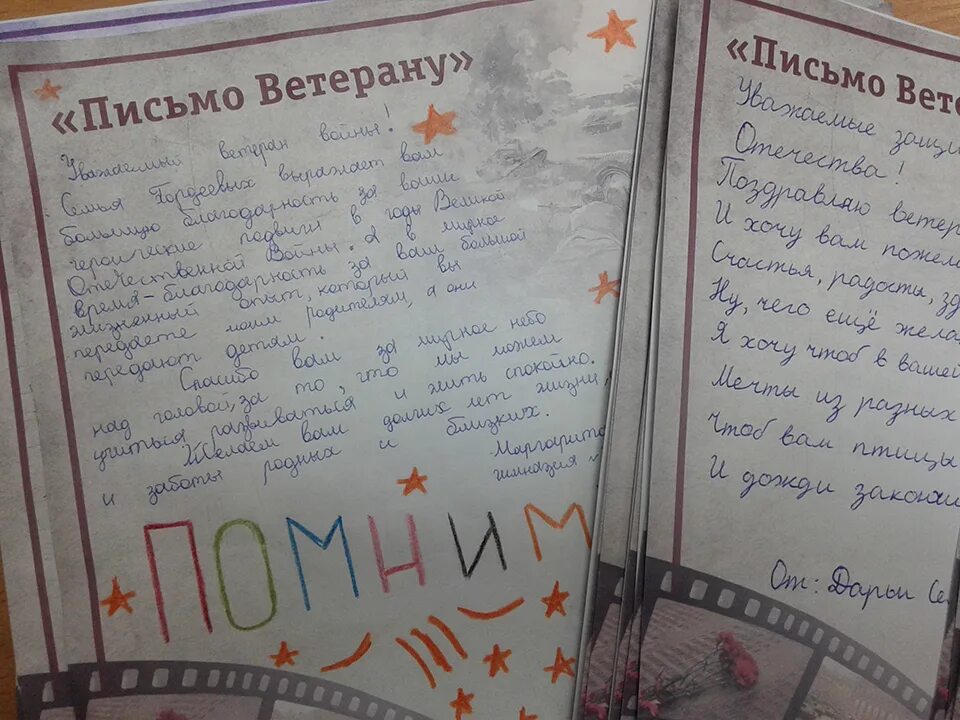 «Письмо Ветерану»
Уважаемый ветеран войны!
Семья Гордеевых выражает вам
большую благодарность за ваши
героические подвиги в годы Великой
Отечественной Войны. А в мирное
время - благодарность за ваш большой
жизненный опыт, который вы
передаёте моим родителям, а они
передают детям.
Спасибо вам за мирное небо
над головой, за то, что мы можем
учиться развиваться и жить спокойно.
Желаем вам долгих лет жизни,
и заботы родных и близких.
Маргарита
гимназия
ПОМНИМ
«Письмо Вете
Уважаемые защи
Отечества!
Поздравляю ветер
И хочу вам пожел
Счастья, радости, зд
Ну, чего ещё жела
Я хочу чтоб в вашей
Мечты из разных
Чтоб вам птицы
И дожди закон
От: Дарьи Се